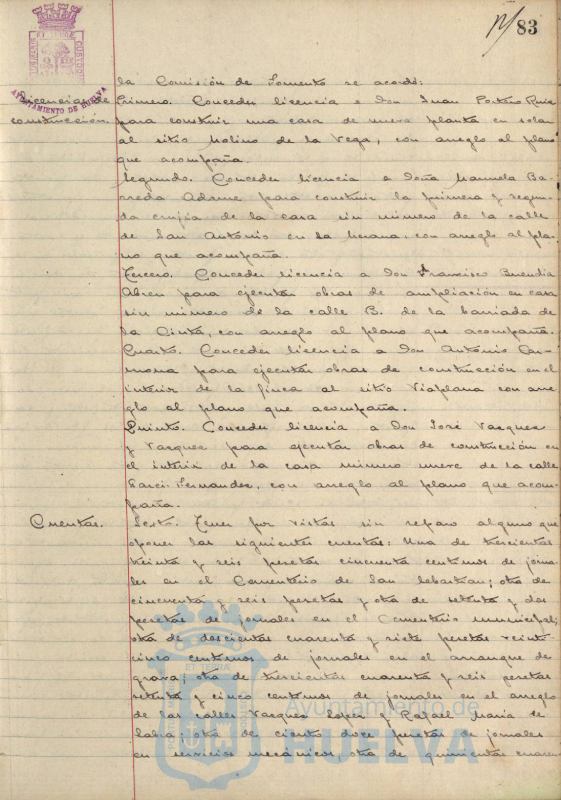 83
AYUNTAMIENTO DE HUELVA
la Comisión de Fomento se acordó:
Licencias de
construcción.
Primero. Conceder licencia a Don Juan Ruiz
para construir una casa de nueva planta en solar
al sitio Molino de la Vega, con arreglo al plano
que acompaña.
Segundo. Conceder licencia a Doña Manuela Ba-
rreda para construir la primera y segun-
da crujia de la casa sin número de la calle
de San Antonio en la con arreglo al pla-
no que acompaña.
Tercero. Conceder licencia a Don Francisco Buendia
Abreu para ejecutar obras de ampliación en casa
sin número de la calle B. de la barriada de
la Cinta, con arreglo al plano que acompaña.
Cuarto. Conceder licencia a Don Antonio Car-
mona para ejecutar obras de construcción en el
interior de la finca al sitio Viaplana con arre-
glo al plano que acompaña.
Quinto. Conceder licencia a Don José Vazquez
y Vazquez para ejecutar obras de construcción en
el interior de la casa número nueve de la calle
Garci-Fernandez, con arreglo al plano que acom-
paña.
Cuentas.
Sexto. Tener por vistas sin reparo alguno que
oponer las siguientes cuentas: Una de trescientas
treinta y seis pesetas cincuenta centimos de jorna-
les en el Cementerio de San Sebastian; otra de
cincuenta y seis pesetas y otra de setenta y dos
pesetas de jornales en el Cementerio municipal;
otra de doscientas cuarenta y siete pesetas veinti-
cinco centimos de jornales en el arranque de
grava; otra de trescientas cuarenta y seis pesetas
setenta y cinco centimos de jornales en el arreglo
de las calles Vazquez Lopez y Rafael Maria de
Labra; otra de ciento doce pesetas de jornales
en servicios mecánicos, otra de quinientas cuaren-
Ayuntamiento de
HUELVA